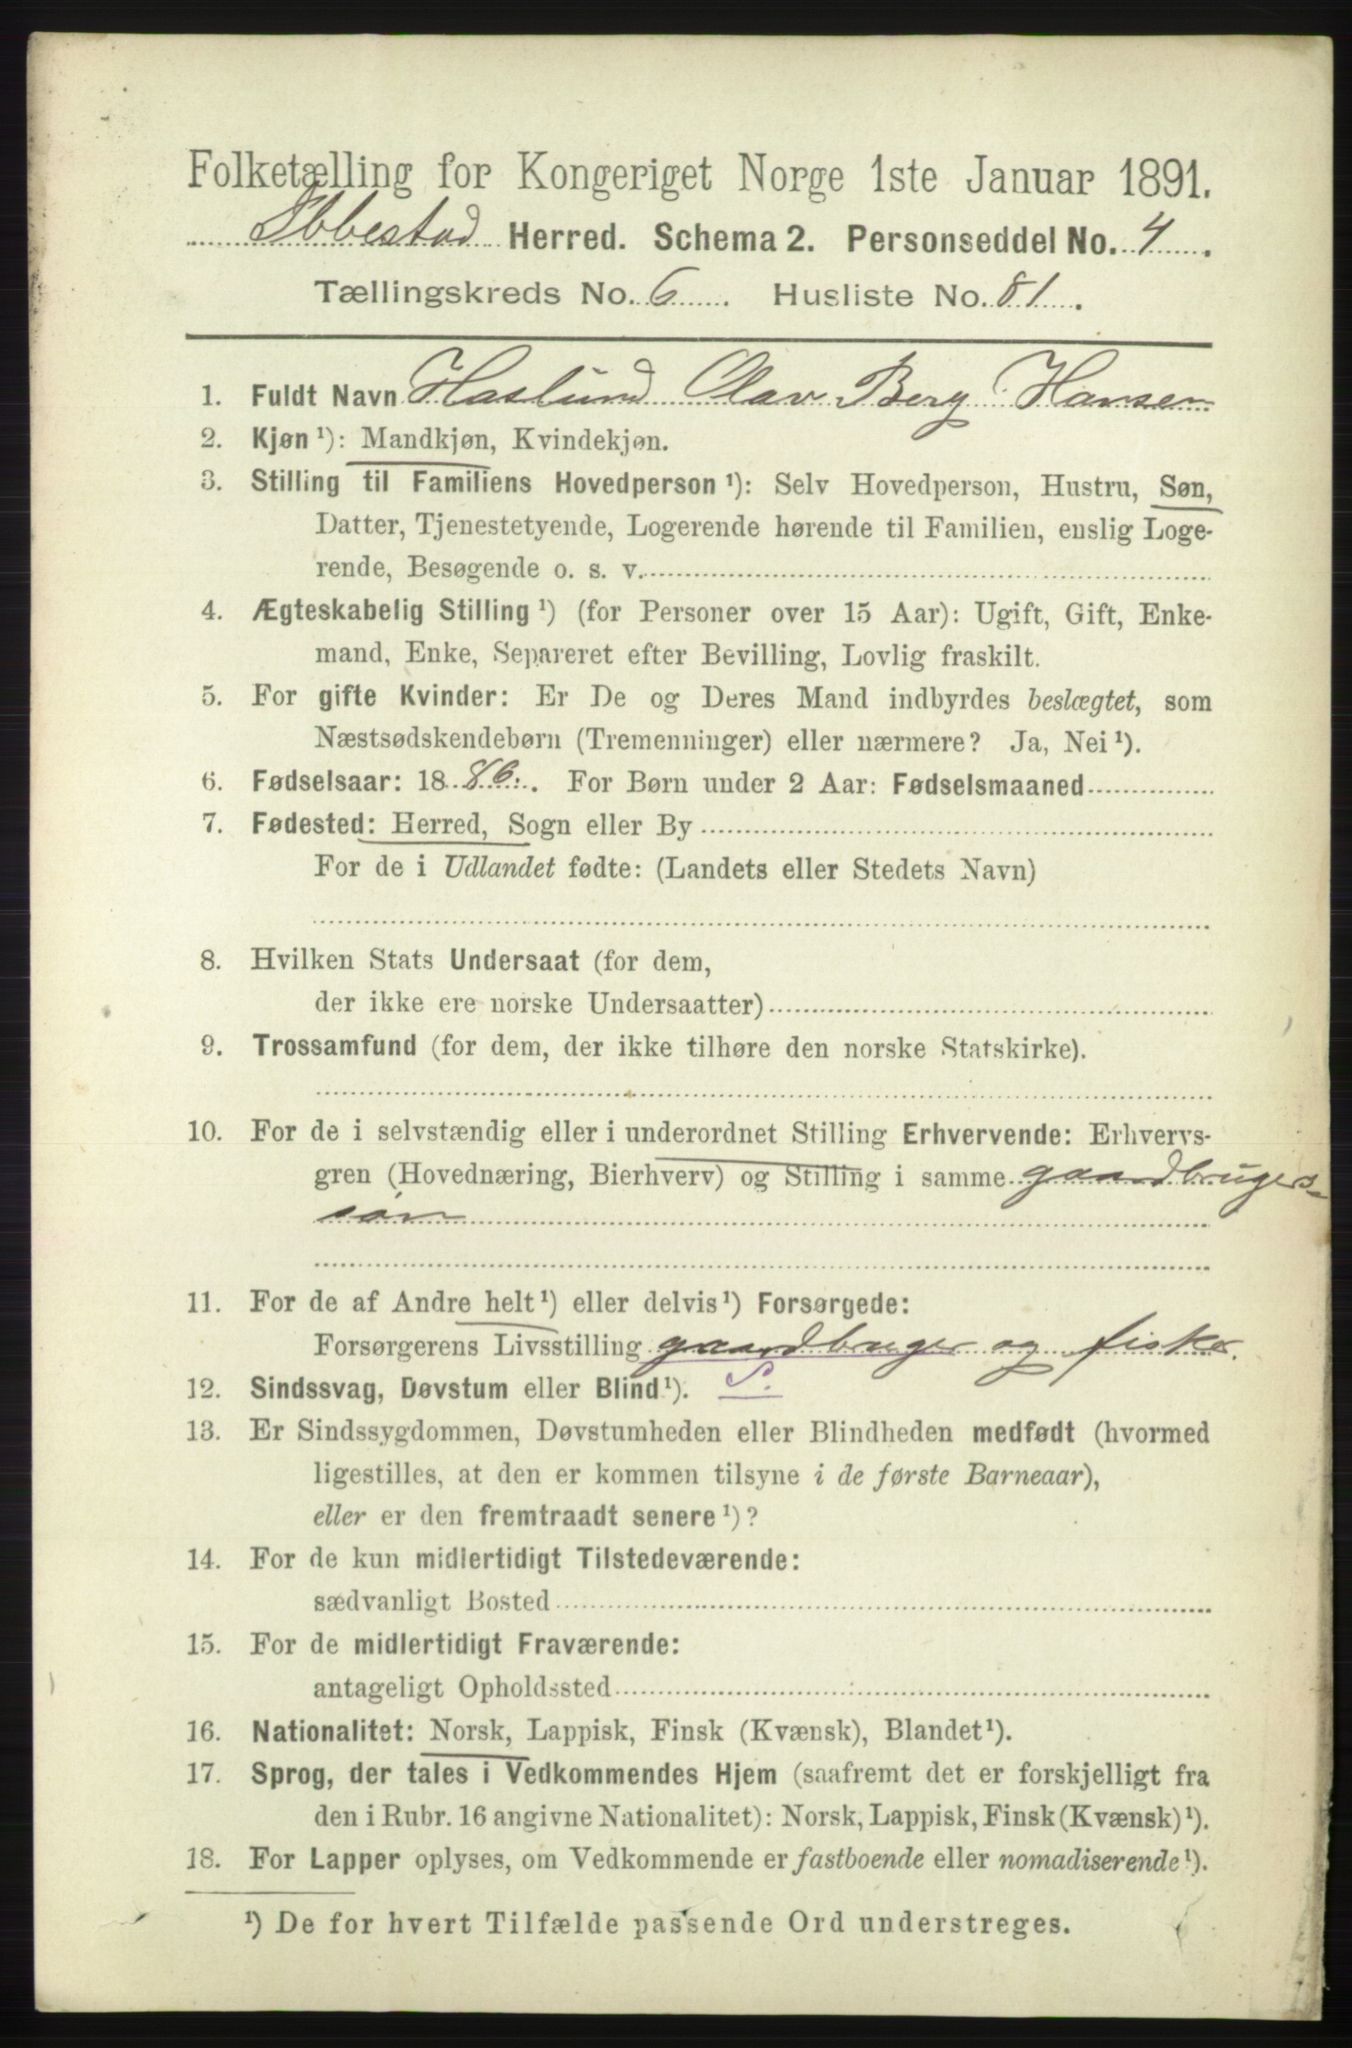 Folketælling for Kongeriget Norge 1ste Januar 1891.
Ibbestad Herred. Schema 2. Personseddel No. 4.
Tællingskreds No. 6. Husliste No. 81.
1. Fuldt Navn Haslund Olav Berg Hansen
2. Kjøn¹): Mandkjøn, Kvindekjøn.
3. Stilling til Familiens Hovedperson¹): Selv Hovedperson, Hustru, Søn,
Datter, Tjenestetyende, Logerende hørende til Familien, enslig Loge-
rende, Besøgende o. s. v.
4. Ægteskabelig Stilling¹) (for Personer over 15 Aar): Ugift, Gift, Enke-
mand, Enke, Separeret efter Bevilling, Lovlig fraskilt.
5. For gifte Kvinder: Er De og Deres Mand indbyrdes beslægtet, som
Næstsødskendebørn (Tremenninger) eller nærmere? Ja, Nei¹).
6. Fødselsaar: 1886. For Børn under 2 Aar: Fødselsmaaned
7. Fødested: Herred, Sogn eller By
For de i Udlandet fødte: (Landets eller Stedets Navn)
8. Hvilken Stats Undersaat (for dem,
der ikke ere norske Undersaatter)
9. Trossamfund (for dem, der ikke tilhøre den norske Statskirke).
10. For de i selvstændig eller i underordnet Stilling Erhvervende: Erhvervs-
gren (Hovednæring, Bierhverv) og Stilling i samme gaardbrugers-
søn
11. For de af Andre helt¹) eller delvis¹) Forsørgede:
Forsørgerens Livsstilling gaardbruger og fisker
12. Sindssvag, Døvstum eller Blind¹). S.
13. Er Sindssygdommen, Døvstumheden eller Blindheden medfødt (hvormed
ligestilles, at den er kommen tilsyne i de første Barneaar),
eller er den fremtraadt senere¹)?
14. For de kun midlertidigt Tilstedeværende:
sædvanligt Bosted
15. For de midlertidigt Fraværende:
antageligt Opholdssted
16. Nationalitet: Norsk, Lappisk, Finsk (Kvænsk), Blandet¹).
17. Sprog, der tales i Vedkommendes Hjem (saafremt det er forskjelligt fra
den i Rubr. 16 angivne Nationalitet): Norsk, Lappisk, Finsk (Kvænsk)¹).
18. For Lapper oplyses, om Vedkommende er fastboende eller nomadiserende¹).
¹) De for hvert Tilfælde passende Ord understreges.